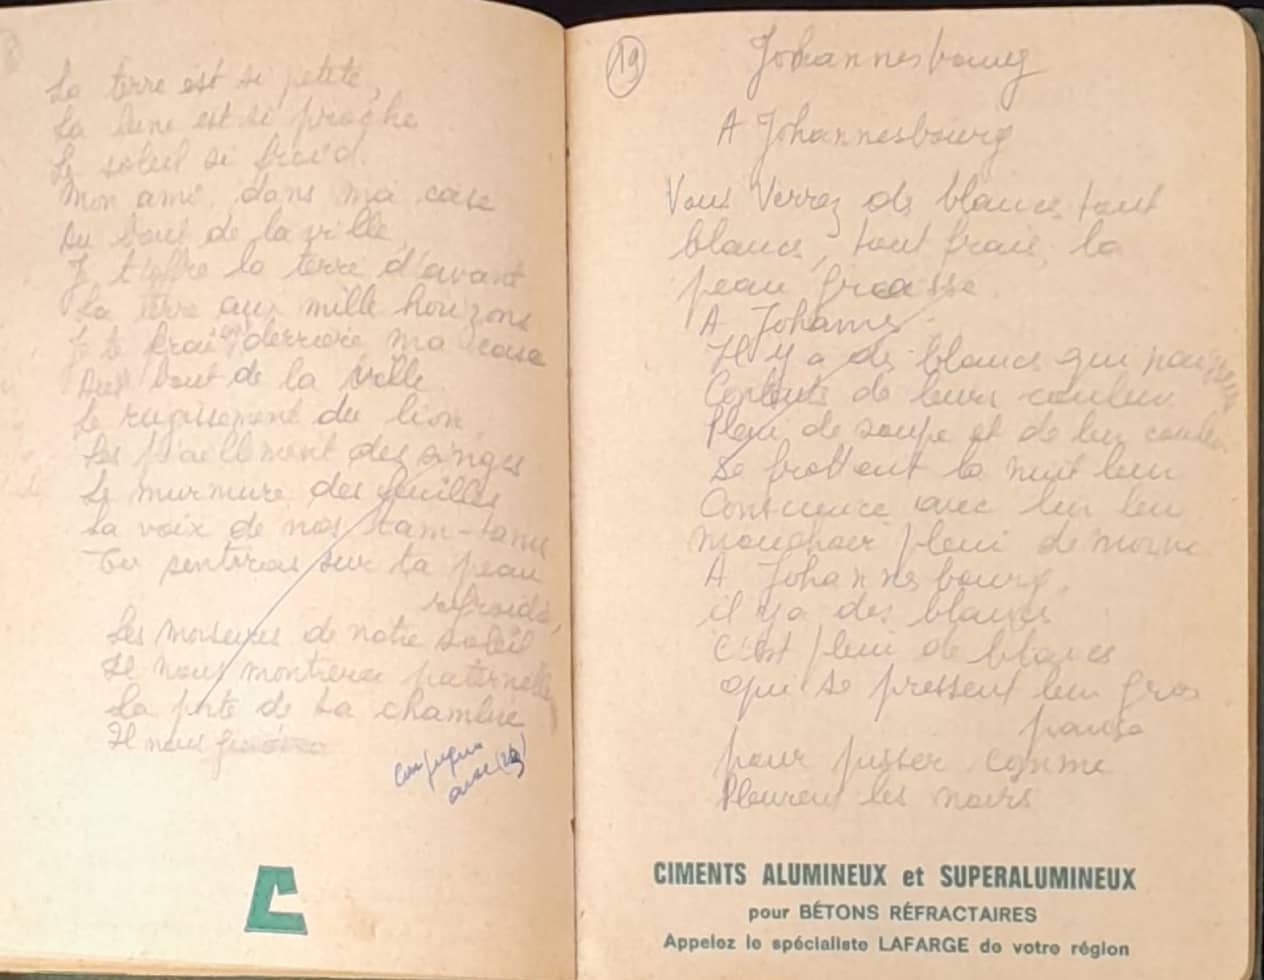 La terre est si petite,
La lune est si proche
Le soleil si froid.
Mon ami, dans ma case
Au bout de la ville,
Je t'offre la terre d'avant
La terre aux mille horizons
derrière ma case
Au bout de la ville
Le rugissement du lion
Les piaillement des singes
Le murmure des feuilles
La voix de nos tam-tams
Tu sentiras sur ta peau
refroidie,
Les morsures de notre soleil
Il nous montrera paternelle
La porte de sa chambre
Il nous
avec
19
Johannesbourg
A Johannesbourg
Vous verrez des blancs tout
blancs, tout frais, la
peau grasse
A Johannes
Il y a des blancs qui
Contents de leurs couleur
Plein de soupe et de leur couleur
Se frottent la nuit leur
Conscience avec leur leur
mouchoir plein de morve
A Johannesbourg,
il y a des blancs
c'est plein de blancs
qui se pressent leur gros
panse
pour pisser comme
Pleurent les noirs
C
CIMENTS ALUMINEUX et SUPERALUMINEUX
pour BÉTONS RÉFRACTAIRES
Appelez le spécialiste LAFARGE de votre région